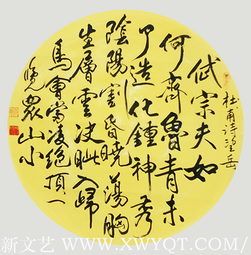 杜甫诗望岳
岱宗夫如
何齊魯青未
了造化鍾神秀
陰陽割昏曉蕩胸
生層雲决眦入歸
鳥會當凌絕頂一
覽眾山小
新文艺 WWW.XWYQT.COM